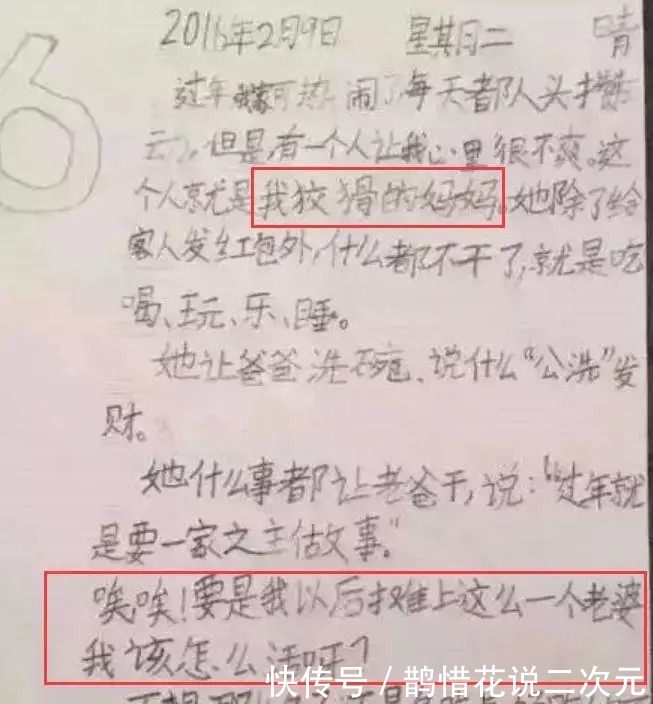 6
2016年2月9日 星期二 晴
过年我家可热闹了,每天都队头攒
云,但是,有一个人让我心里很不爽。这
个人就是我狡猾的妈妈,她除了给
客人发红包外,什么都不干了,就是吃
喝、玩、乐、睡。
她让爸爸洗碗、说什么“公洗”发
财。
她什么事都让老爸干,说:“过年就
是要一家之主做事。”
唉,唉!要是我以后摊上这么一个老婆
我该怎么活呀?
快传号/鹊惜花说二次元